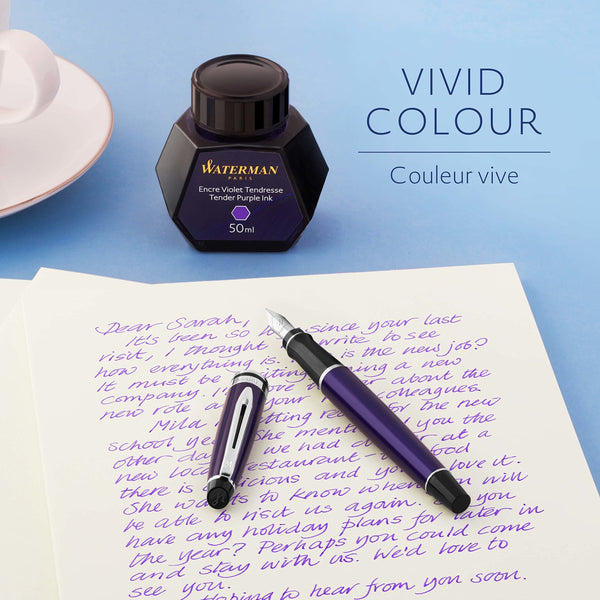 VIVID
COLOUR
Couleur vive
WATERMAN
PARIS
Encre Violet Tendresse
Tender Purple Ink
50ml
Dear Sarah,
It's been so since your last
visit, I thought write to see
how everything is. is the new job?
It must be a new
company. about the
new role colleagues.
Mila getting for the new
school She you the
other day we had at a
new restaurant - food
there is delicious and love it.
She wants to know when will
be able to visit us again. you
have any holiday plans for later in
the year? Perhaps you could come
and stay with us. We'd love to
see you.
Hoping to hear from you soon.